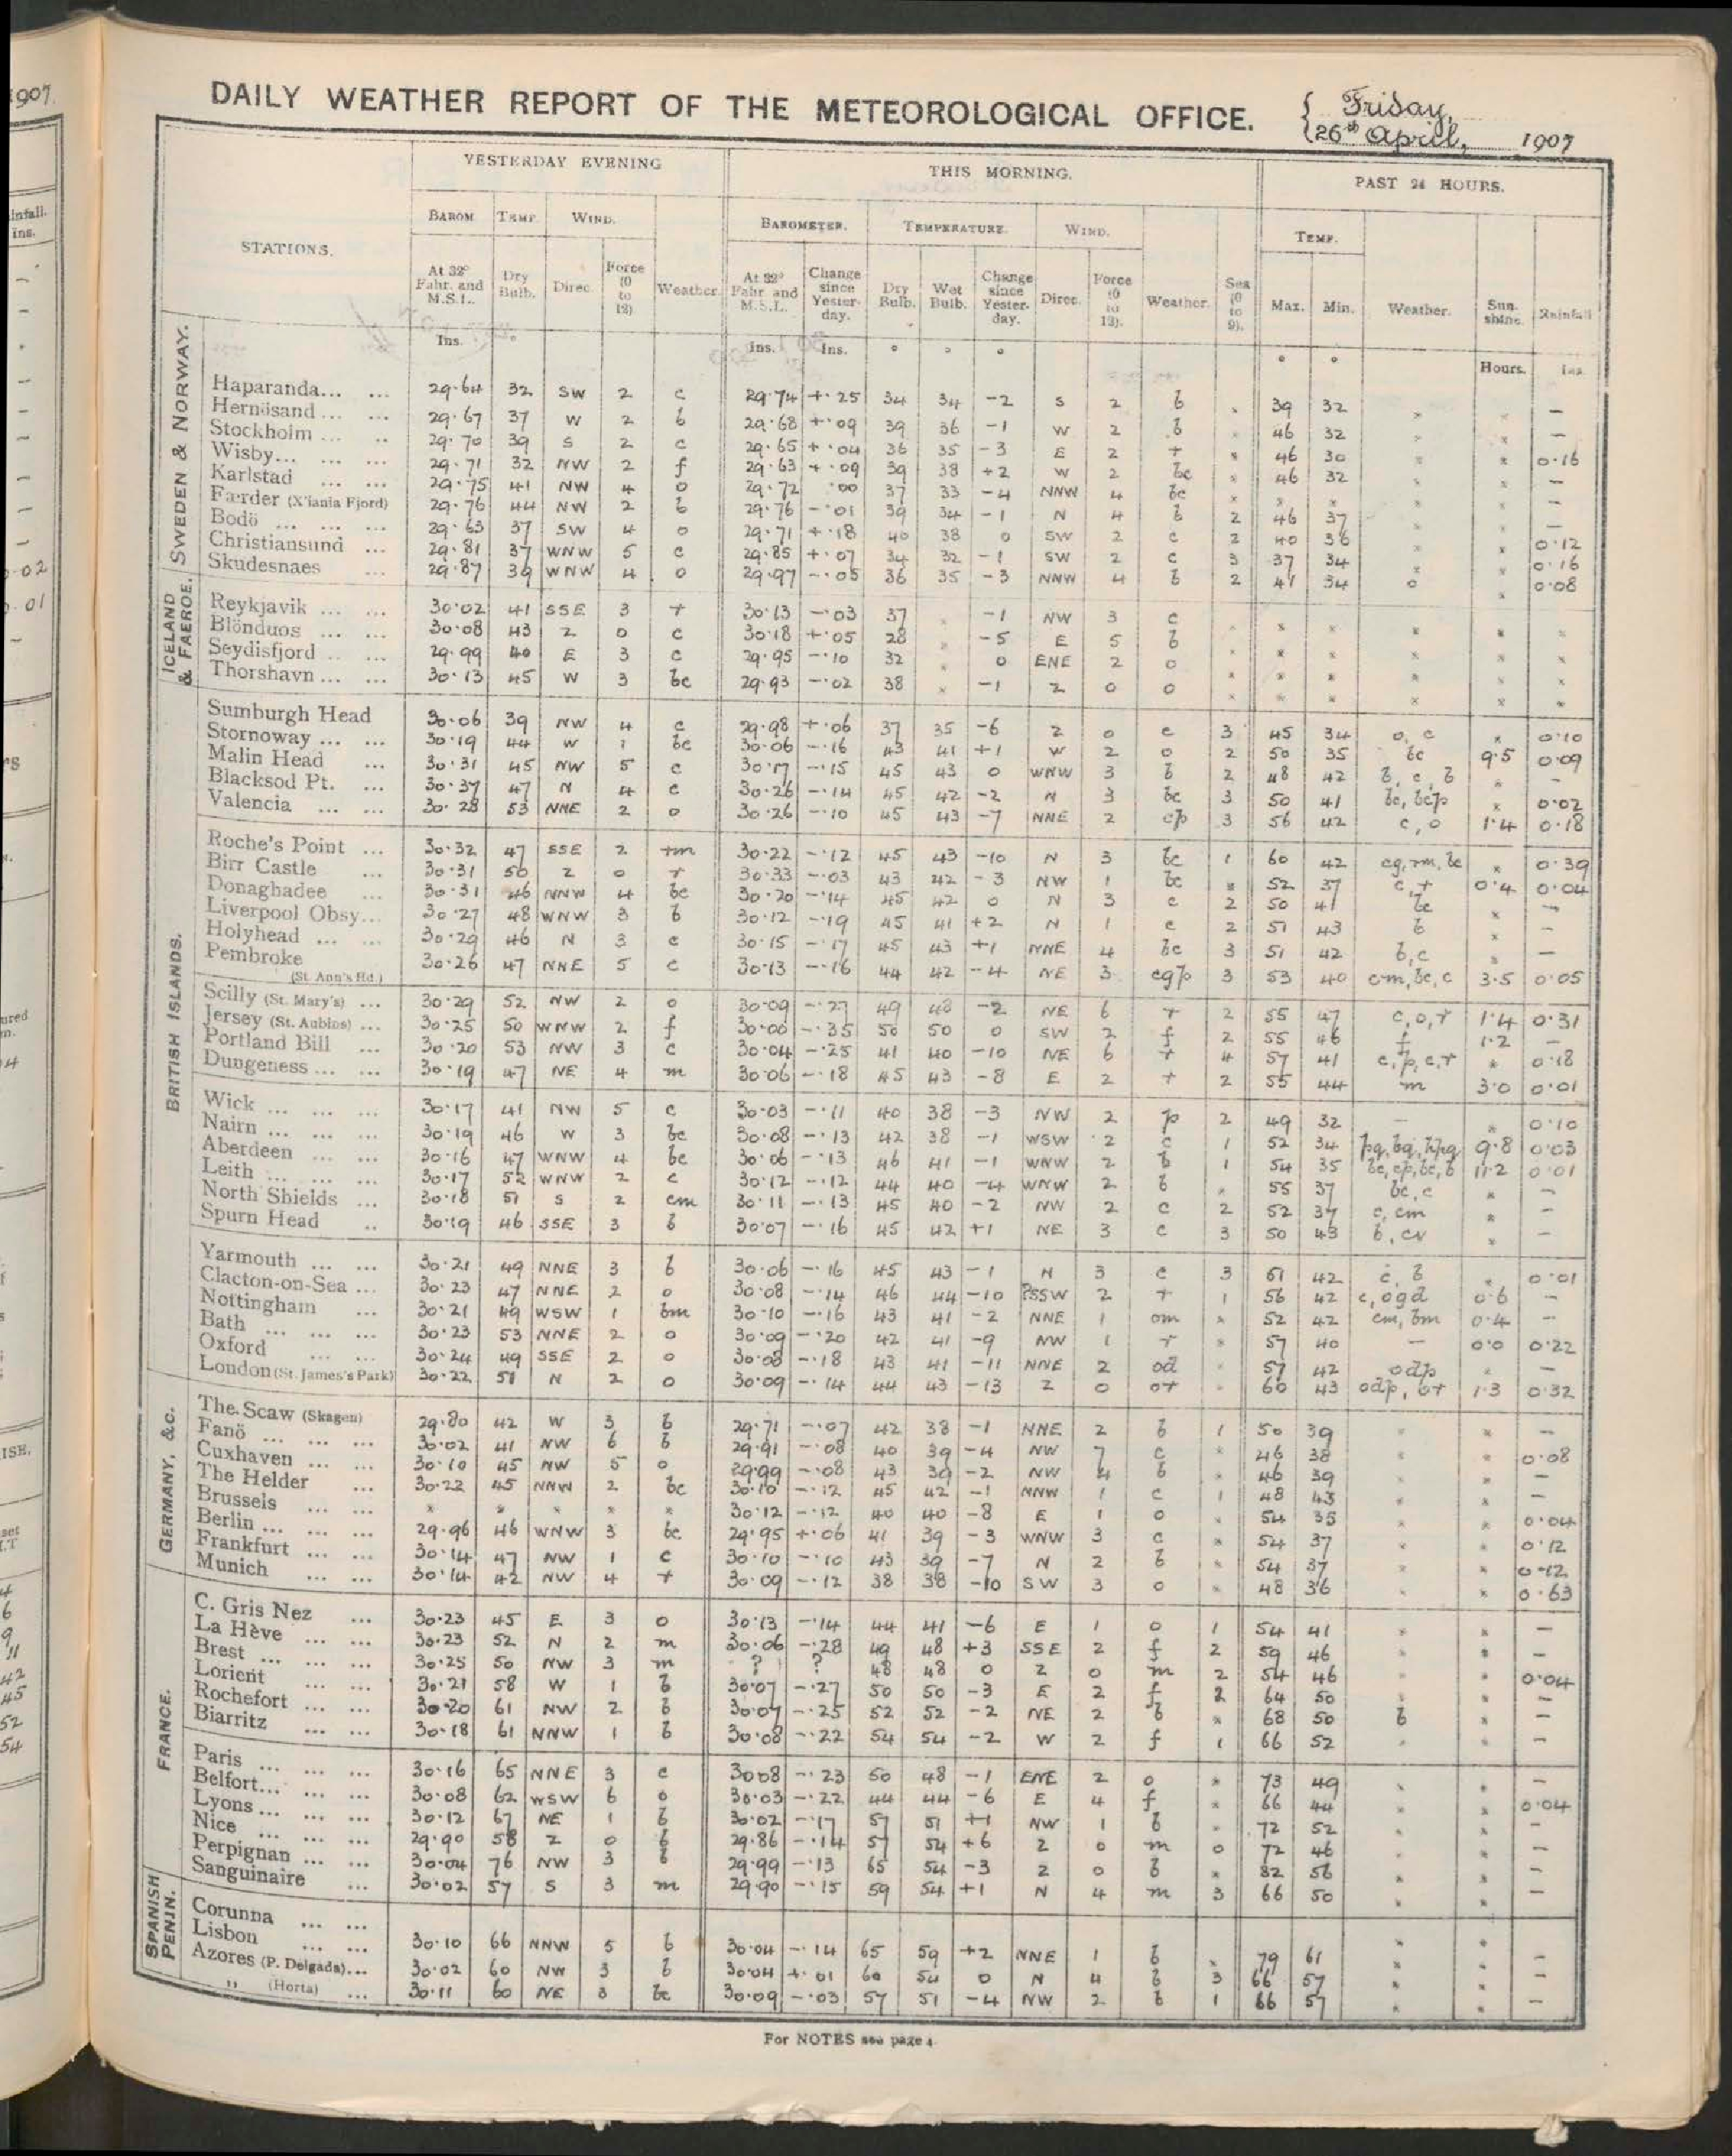 1907
DAILY WEATHER REPORT OF THE METEOROLOGICAL OFFICE. { Friday,
{ 26th April, 1907
YESTERDAY EVENING THIS MORNING. PAST 24 HOURS.
STATIONS. BAROM. TEMP. WIND. Weather. BAROMETER. TEMPERATURE. WIND. Weather. Sea (0 to 9). TEMP. Weather. Sunshine. Rainfall
At 32° Fahr. and M.S.L. Dry Bulb. Direc. Force (0 to 12) At 32° Fahr. and M.S.L. Change since Yesterday. Dry Bulb. Wet Bulb. Change since Yesterday. Direc. Force (0 to 12). Max. Min.
Ins. ° Ins. Ins. ° ° ° ° ° Hours. Ins.
SWEDEN & NORWAY.
Haparanda... ... 29·64 32 SW 2 c 29·74 +·25 34 34 -2 S 2 b × 39 32 × × —
Hernösand ... ... 29·67 37 W 2 b 29·68 +·09 39 36 -1 W 2 b × 46 32 × × —
Stockholm ... .. 29·70 39 S 2 c 29·65 +·04 36 35 -3 E 2 r × 46 30 × × 0·16
Wisby... ... ... 29·71 32 NW 2 f 29·63 +·09 39 38 +2 W 2 bc × 46 32 × × —
Karlstad ... ... 29·75 41 NW 4 o 29·72 ·00 37 33 -4 NNW 4 bc × × × × × —
Færder (X'iania Fjord) 29·76 44 NW 2 b 29·76 -·01 39 34 -1 N 4 b 2 46 37 × × —
Bodö ... ... ... 29·63 37 SW 4 o 29·71 +·18 40 38 0 SW 2 c 2 40 36 × × 0·12
Christiansund ... 29·81 37 WNW 5 c 29·85 +·07 34 32 -1 SW 2 c 3 37 34 × × 0·16
Skudesnaes ... 29·87 39 WNW 4 o 29·97 -·05 36 35 -3 NNW 4 b 2 41 34 o × 0·08
ICELAND & FAEROE.
Reykjavik ... ... 30·02 41 SSE 3 r 30·13 -·03 37 × -1 NW 3 c × × × × × ×
Blönduos ... ... 30·08 43 Z 0 c 30·18 +·05 28 × -5 E 5 b × × × × × ×
Seydisfjord .. ... 29·99 40 E 3 c 29·95 -·10 32 × 0 ENE 2 o × × × × × ×
Thorshavn ... ... 30·13 45 W 3 bc 29·93 -·02 38 × -1 Z 0 o × × × × × ×
BRITISH ISLANDS.
Sumburgh Head 30·06 39 NW 4 c 29·98 +·06 37 35 -6 Z 0 c 3 45 34 o, c × 0·10
Stornoway ... ... 30·19 44 W 1 bc 30·06 -·16 43 41 +1 W 2 o 2 50 35 bc 9·5 0·09
Malin Head ... 30·31 45 NW 5 c 30·17 -·15 45 43 0 WNW 3 b 2 48 42 b, c, b × —
Blacksod Pt. ... 30·37 47 N 4 c 30·26 -·14 45 42 -2 N 3 bc 3 50 41 bc, bcp × 0·02
Valencia ... ... 30·28 53 NNE 2 o 30·26 -·10 45 43 -7 NNE 2 cp 3 56 42 c, o 1·4 0·18
Roche's Point ... 30·32 47 SSE 2 rm 30·22 -·12 45 43 -10 N 3 bc 1 60 42 cg, rm, bc × 0·39
Birr Castle ... 30·31 50 Z 0 r 30·33 -·03 43 42 -3 NW 1 bc × 52 37 c, r 0·4 0·04
Donaghadee ... 30·31 46 NNW 4 bc 30·20 -·14 45 42 0 N 3 c 2 50 41 bc × —
Liverpool Obsy... 30·27 48 WNW 3 b 30·12 -·19 45 41 +2 N 1 c 2 51 43 b × —
Holyhead ... ... 30·29 46 N 3 c 30·15 -·17 45 43 +1 NNE 4 bc 3 51 42 b, c × —
Pembroke (St. Ann's Hd.) 30·26 47 NNE 5 c 30·13 -·16 44 42 -4 NE 3 cgp 3 53 40 cm, bc, c 3·5 0·05
Scilly (St. Mary's) ... 30·29 52 NW 2 o 30·09 -·27 49 48 -2 NE 6 r 2 55 47 c, o, r 1·4 0·31
Jersey (St. Aubins) ... 30·25 50 WNW 2 f 30·00 -·35 50 50 0 SW 2 f 2 55 46 f 1·2 —
Portland Bill ... 30·20 53 NW 3 c 30·04 -·25 41 40 -10 NE 6 r 4 57 41 c, p, c, r × 0·18
Dungeness ... ... 30·19 47 NE 4 m 30·06 -·18 45 43 -8 E 2 r 2 55 44 m 3·0 0·01
Wick ... ... ... 30·17 41 NW 5 c 30·03 -·11 40 38 -3 NW 2 p 2 49 32 — × 0·10
Nairn ... ... ... 30·19 46 W 3 bc 30·08 -·13 42 38 -1 WSW 2 c 1 52 34 pq, bq, hpq 9·8 0·03
Aberdeen ... ... 30·16 47 WNW 4 bc 30·06 -·13 46 41 -1 WNW 2 b 1 54 35 bc, cp, bc, b 11·2 0·01
Leith ... ... ... 30·17 52 WNW 2 c 30·12 -·12 44 40 -4 WNW 2 b × 55 37 bc, c × —
North Shields ... 30·18 51 S 2 cm 30·11 -·13 45 40 -2 NW 2 c 2 52 37 c, cm × —
Spurn Head .. 30·19 46 SSE 3 b 30·07 -·16 45 42 +1 NE 3 c 3 50 43 b, cv × —
Yarmouth ... ... 30·21 49 NNE 3 b 30·06 -·16 45 43 -1 N 3 c 3 61 42 c, b × 0·01
Clacton-on-Sea ... 30·23 47 NNE 2 o 30·08 -·14 46 44 -10 ?SSW 2 r 1 56 42 c, ogd 0·6 —
Nottingham ... 30·21 49 WSW 1 bm 30·10 -·16 43 41 -2 NNE 1 om × 52 42 cm, bm 0·4 —
Bath ... ... ... 30·23 53 NNE 2 o 30·09 -·20 42 41 -9 NW 1 r × 57 40 — 0·0 0·22
Oxford ... ... 30·24 49 SSE 2 o 30·08 -·18 43 41 -11 NNE 2 od × 57 42 odp × —
London (St. James's Park) 30·22 51 N 2 o 30·09 -·14 44 43 -13 Z 0 or × 60 43 odp, or 1·3 0·32
GERMANY, &c.
The Scaw (Skagen) 29·80 42 W 3 b 29·71 -·07 42 38 -1 NNE 2 b 1 50 39 × × —
Fanö ... ... ... 30·02 41 NW 6 b 29·91 -·08 40 39 -4 NW 7 c × 46 38 × × 0·08
Cuxhaven ... ... 30·10 45 NW 5 o 29·99 -·08 43 39 -2 NW 4 b × 46 39 × × —
The Helder ... 30·22 45 NNW 2 bc 30·10 -·12 45 42 -1 NNW 1 c 1 48 43 × × —
Brussels ... ... × × × × × 30·12 -·12 40 40 -8 E 1 o × 54 35 × × 0·04
Berlin ... ... ... 29·96 46 WNW 3 bc 29·95 +·06 41 39 -3 WNW 3 c × 54 37 × × 0·12
Frankfurt ... ... 30·14 47 NW 1 c 30·10 -·10 43 39 -7 N 2 b × 54 37 × × 0·12
Munich ... ... 30·14 42 NW 4 r 30·09 -·12 38 38 -10 SW 3 o × 48 36 × × 0·63
FRANCE.
C. Gris Nez ... 30·23 45 E 3 o 30·13 -·14 44 41 -6 E 1 o 1 54 41 × × —
La Hève ... ... 30·23 52 N 2 m 30·06 -·28 49 48 +3 SSE 2 f 2 59 46 × × —
Brest ... ... ... 30·25 50 NW 3 m ? ? 48 48 0 Z 0 m 2 54 46 × × 0·04
Lorient ... ... 30·21 58 W 1 b 30·07 -·27 50 50 -3 E 2 f 2 64 50 × × —
Rochefort ... ... 30·20 61 NW 2 b 30·07 -·25 52 52 -2 NE 2 b × 68 50 b × —
Biarritz ... ... 30·18 61 NNW 1 b 30·08 -·22 54 54 -2 W 2 f 1 66 52 × × —
Paris ... ... ... 30·16 65 NNE 3 c 30·08 -·23 50 48 -1 ENE 2 o × 73 49 × × —
Belfort... ... ... 30·08 62 WSW 6 o 30·03 -·22 44 44 -6 E 4 f × 66 44 × × 0·04
Lyons ... ... ... 30·12 67 NE 1 b 30·02 -·17 57 51 +1 NW 1 b × 72 52 × × —
Nice ... ... ... 29·90 58 Z 0 b 29·86 -·14 57 54 +6 Z 0 m 0 72 46 × × —
Perpignan ... ... 30·04 76 NW 3 b 29·99 -·13 65 54 -3 Z 0 b × 82 56 × × —
Sanguinaire ... 30·02 57 S 3 m 29·90 -·15 59 54 +1 N 4 m 3 66 50 × × —
SPANISH PENIN.
Corunna ... ...
Lisbon ... ... 30·10 66 NNW 5 b 30·04 -·14 65 59 +2 NNE 1 b × 79 61 × × —
Azores (P. Delgada)... 30·02 60 NW 3 b 30·04 +·01 60 54 0 N 4 b 3 66 57 × × —
,, (Horta) ... 30·11 60 NE 3 bc 30·09 -·03 57 51 -4 NW 2 b 1 66 57 × × —
For NOTES see page 4.